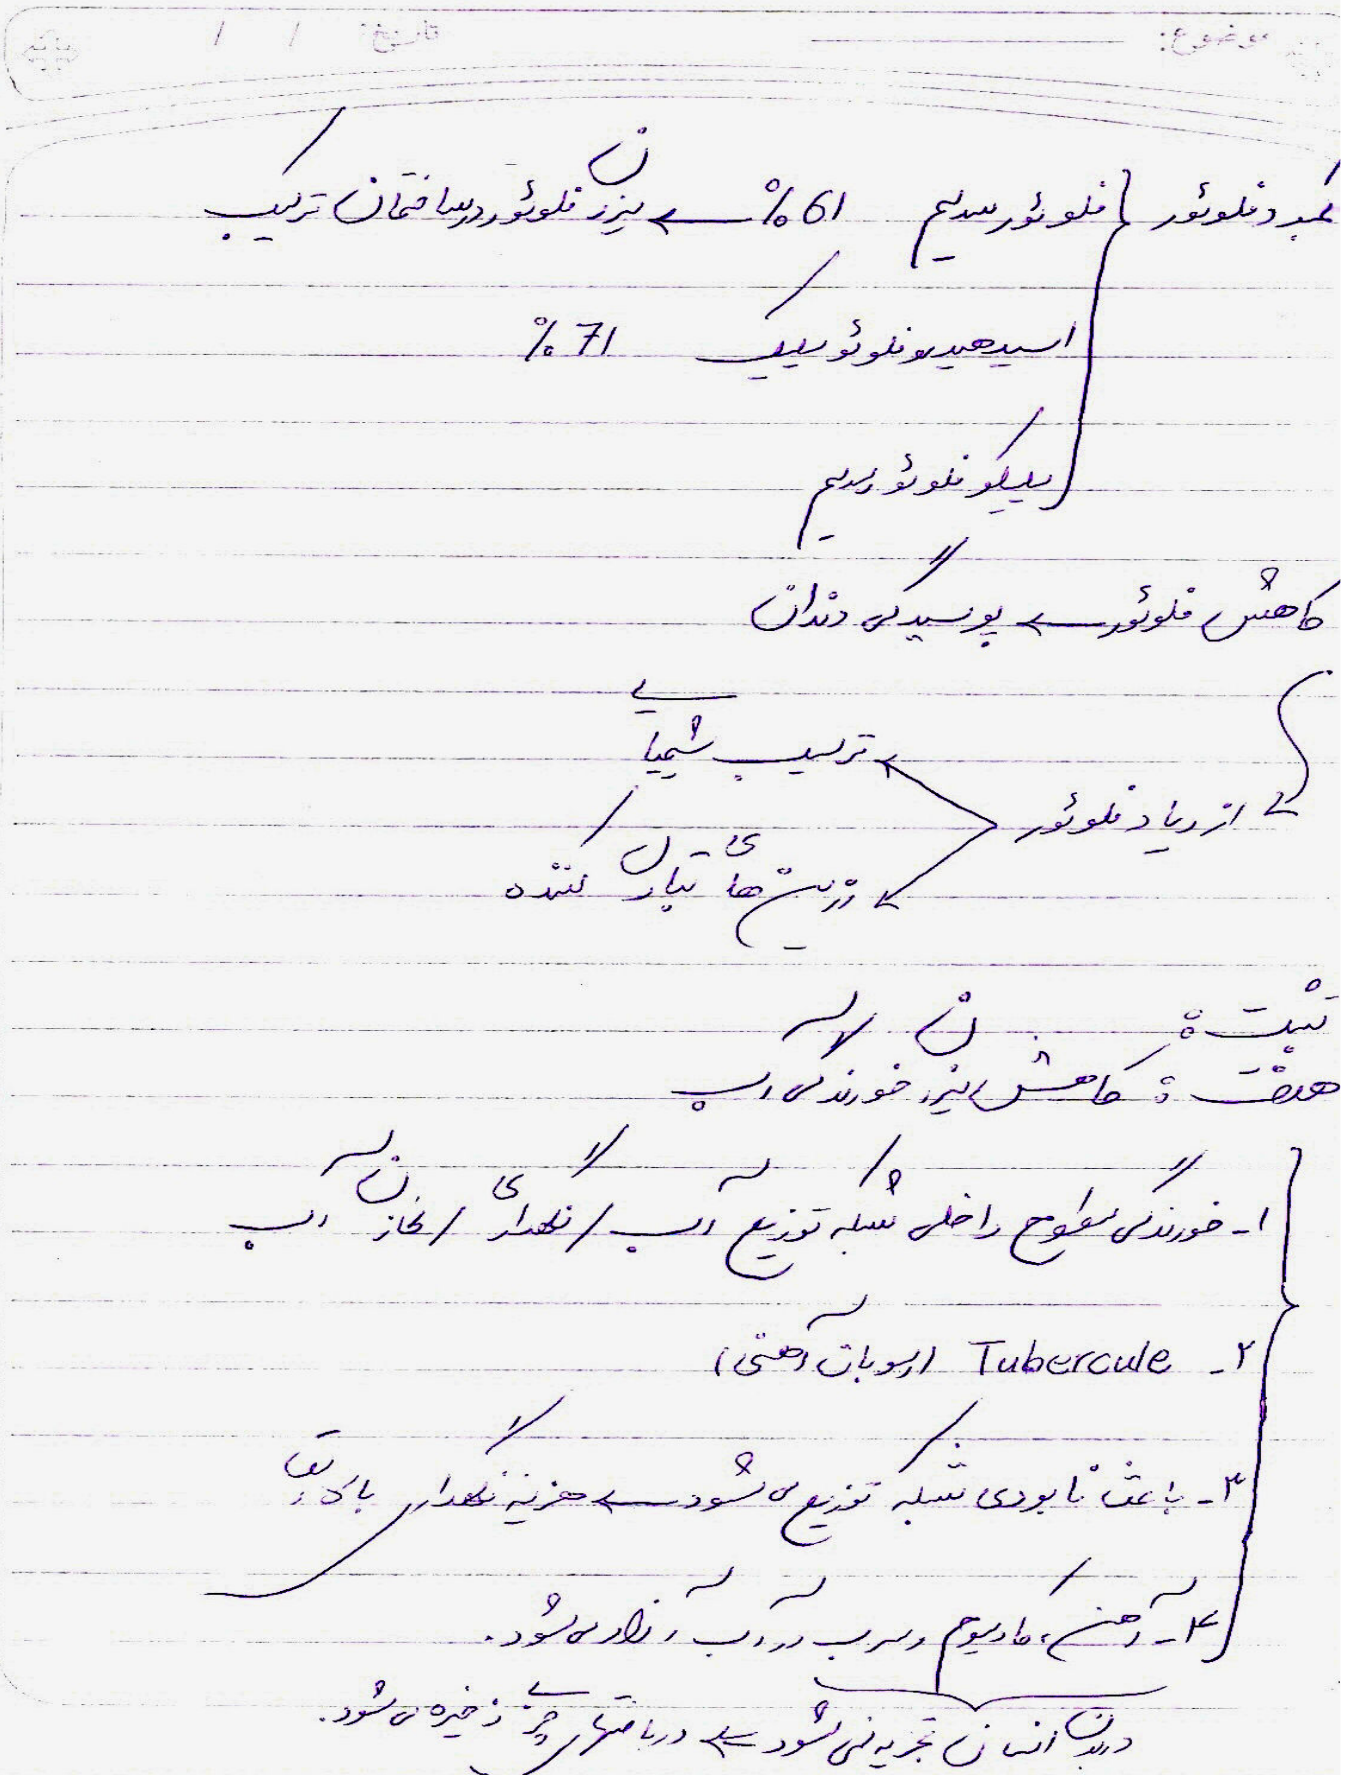 موضوع: تاریخ: / /
کمبود فلوئور } فلوئور سدیم 61% ← میزان فلوئور در ساختمان ترکیب
اسید هیدروفلوئوسیلیک 71%
سیلیکو فلوئور سدیم
کاهش فلوئور ← پوسیدگی دندان
ترکیب شیمیایی
ازدیاد فلوئور
رزین های تبادل کننده
تثبیت:
هدف: کاهش میزان خورندگی آب
۱- خورندگی سطوح داخلی شبکه توزیع آب / نگهداری / مخازن آب
۲- Tubercule (رسوبات آهنی)
۳- باعث نابودی شبکه توزیع می شود ← هزینه نگهداری بالا
۴- آهن، کادمیوم و سرب در آب آزاد می شود.
در بدن انسان تجزیه نمی شود ← در بافتهای چربی ذخیره می شود.